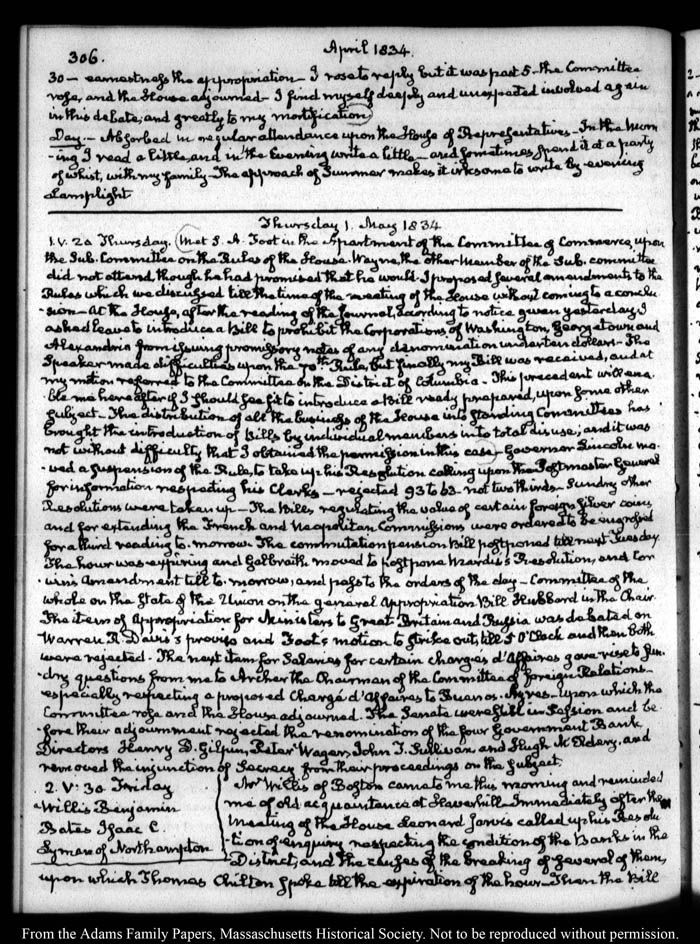 306.
April 1834.
30 — earnestness the appropriation — I rose to reply but it was past 5 — the Committee
rose, and the House adjourned — I find myself deeply and unexpected involved again
in this debate, and greatly to my mortification.
Day. — Absorbed in regular attendance upon the House of Representatives — In the Morn
-ing I read a little, and in the Evening write a little — and sometimes spend it at a party
of whist, with my family — The approach of Summer makes it irksome to write by evening
Lamplight
Thursday 1. May 1834
1. V. 20 Thursday. Met S. A. Foot in the apartment of the Committee of Commerce, upon
the Sub. Committee on the Rules of the House. Wayne, the other Member of the Sub. committee
did not attend, though he had promised that he would. I proposed several amendments to the
Rules which we discussed till the time of the meeting of the House without coming to a conclu
-sion — At the House, after the reading of the Journal, according to notice given yesterday, I
asked leave to introduce a Bill to prohibit the Corporations of Washington, Georgetown and
Alexandria from issuing promissory notes of any denomination under ten dollars — The
Speaker made difficulties upon the 70th Rule, but finally my Bill was received, and at
my motion referred to the Committee on the District of Columbia — This precedent will ena
-ble me hereafter if I should see fit to introduce a Bill ready prepared, upon some other
subject — The distribution of all the business of the House into standing Committees has
brought the introduction of Bills by individual members into total disuse; and it was
not without difficulty that I obtained the permission in this case — Governor Lincoln mo
-ved a suspension of the Rule, to take up his Resolution calling upon the Postmaster General
for information respecting his Clerks — rejected 93 to 63 — not two thirds — Sundry other
Resolutions were taken up — The Bills, regulating the value of certain foreign silver coins,
and for extending the French and Neapolitan Commissions were ordered to be engrossed
for a third reading to-morrow. The commutation pension Bill postponed till next Tuesday.
The hour was expiring and Galbraith moved to postpone Mardis's Resolution, and Cor
-win's amendment till to-morrow; and pass to the orders of the day — Committee of the
whole on the State of the Union on the general Appropriation Bill Hubbard in the Chair
The item of Appropriation for Ministers to Great-Britain and Russia was debated on
Warren R. Davis's proviso and Foot's motion to strike out, till 5 O'Clock and then both
were rejected. The next item for Salaries for certain chargies d'Affaires gave rise to Sun
-dry questions from me to Archer the Chairman of the Committee of foreign Relations —
especially respecting a proposed Chargé d'Affaires to Buenos-Ayres — upon which the
Committee rose and the House adjourned. The Senate were still in session and be
-fore their adjournment rejected the renomination of the four Government Bank
Directors Henry D. Gilpin, Peter Wager, John T. Sullivan and Hugh McEldery, and
removed the injunction of Secrecy from their proceedings on the subject.
2. V: 30 Friday
Willis Benjamin
Bates Isaac C.
Lyman of Northampton
Mr Willis of Boston came to me this morning and reminded
me of old acquaintance at Haverhill. Immediately after the
Meeting of the House Leonard Jarvis called up his Resolu
-tion of enquiry respecting the condition of the Banks in the
District, and the causes of the breaking of several of them,
upon which Thomas Chilton spoke till the expiration of the hour — Then the Bill
From the Adams Family Papers, Massachusetts Historical Society. Not to be reproduced without permission.